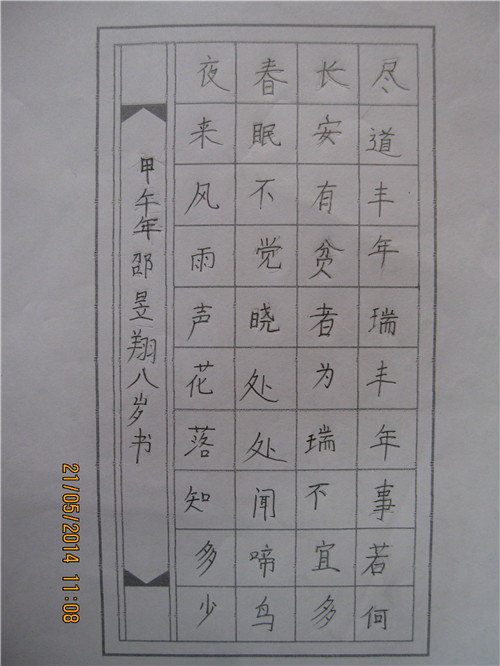 尽道丰年瑞丰年事若何
长安有贫者为瑞不宜多
春眠不觉晓处处闻啼鸟
夜来风雨声花落知多少
甲午年邵昱翔八岁书
21/05/2014 11:08